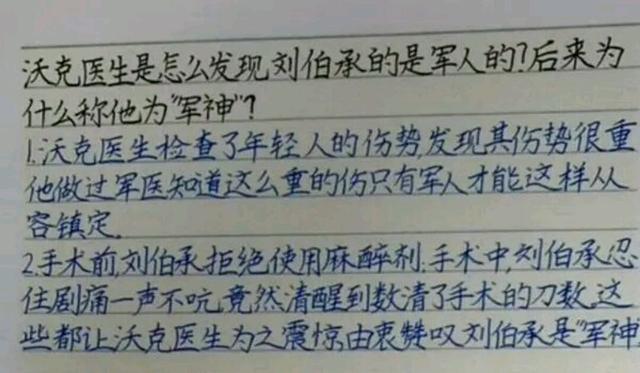 沃克医生是怎么发现刘伯承的是军人的?后来为
什么称他为"军神"?
1.沃克医生检查了年轻人的伤势,发现其伤势很重
他做过军医知道这么重的伤只有军人才能这样从
容镇定.
2.手术前,刘伯承拒绝使用麻醉剂.手术中,刘伯承忍
住剧痛一声不吭,竟然清醒到数清了手术的刀数,这
些都让沃克医生为之震惊,由衷赞叹刘伯承是"军神